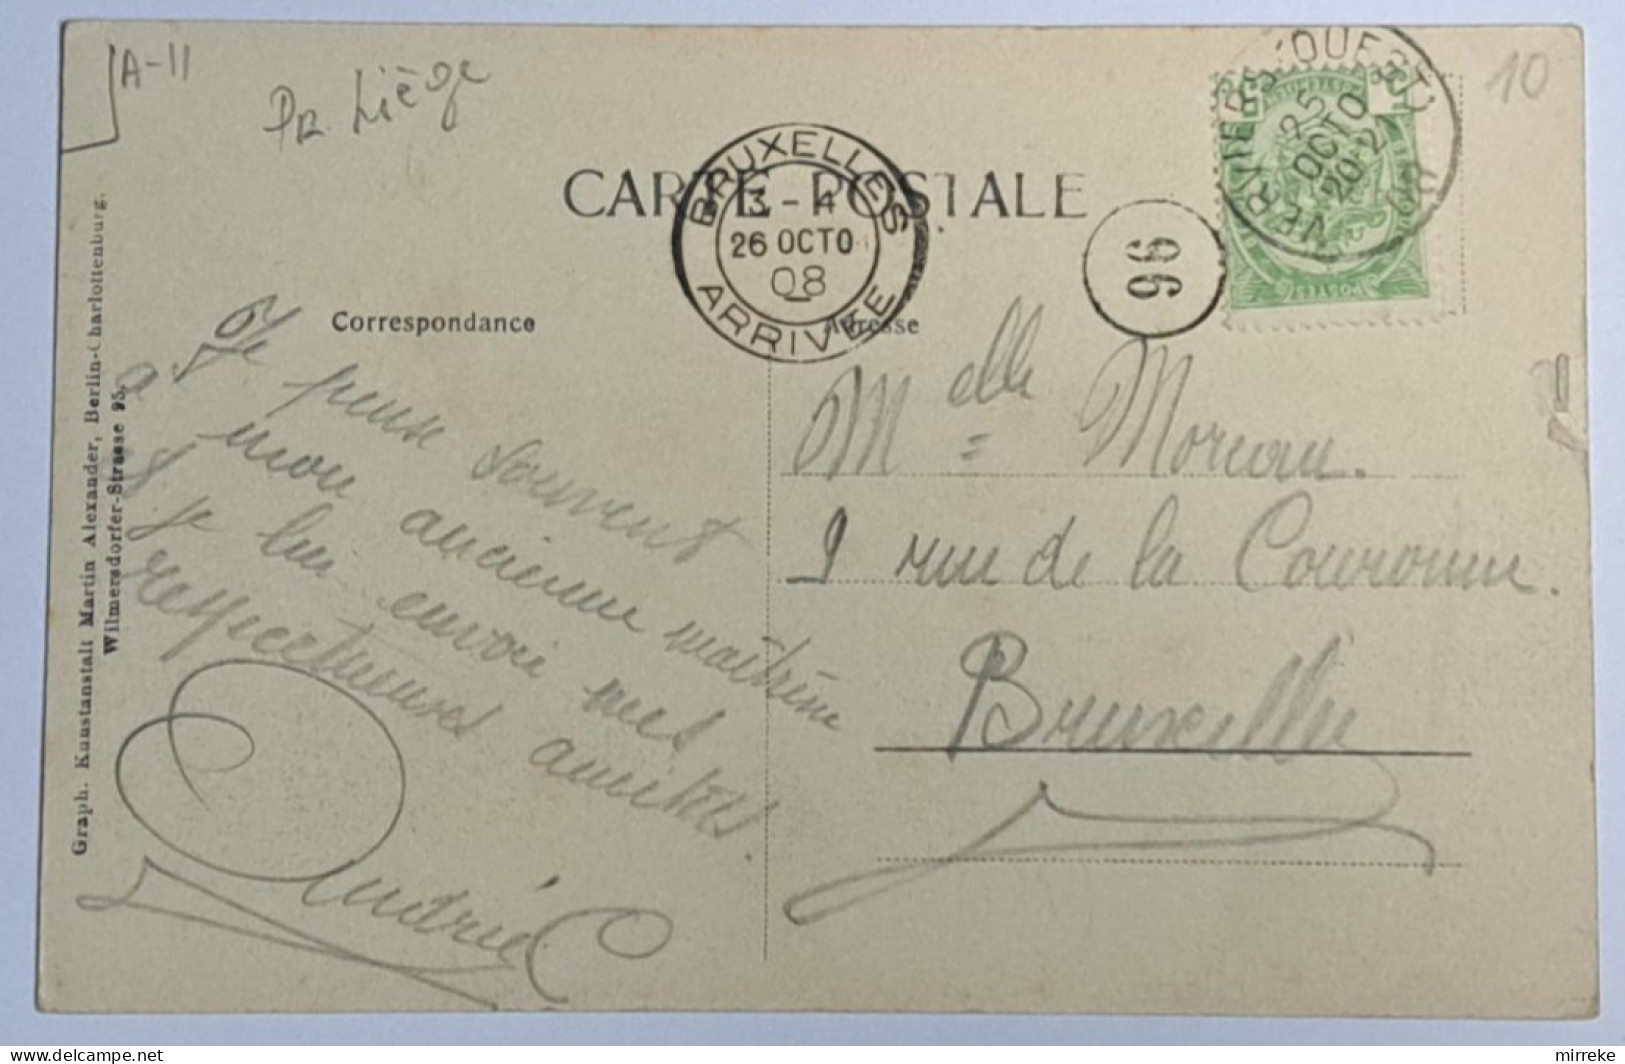 A-11
Pr. Liège
10
CARTE POSTALE
BRUXELLES
3 - 4
26 OCTO
08
ARRIVÉE
96
VERVIERS (OUEST)
25
OCTO
20-21
POSTES
Correspondance
Adresse
Je pense souvent
à mon ancienne maîtresse
et je lui envoie mes
respectueuses amitiés.
Andrée
Melle Moreau.
9 rue de la Couronne.
Bruxelles
Graph. Kunstanstalt Martin Alexander, Berlin-Charlottenburg.
Wilmersdorfer-Strasse 95.
mirreke